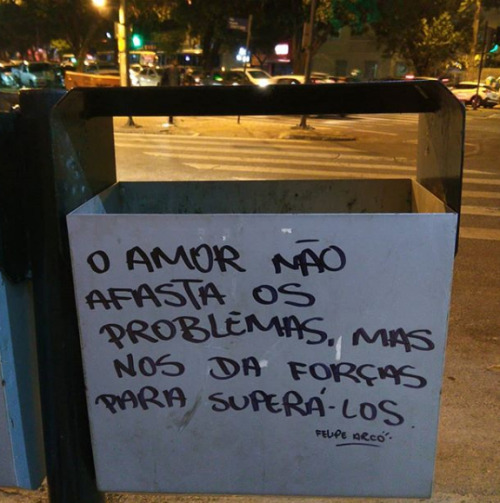 O AMOR NÃO
AFASTA OS
PROBLĒMAS, MAS
NOS DA FORÇAS
PARA SUPERÁ-LOS.
FELIPE ARCÓ.